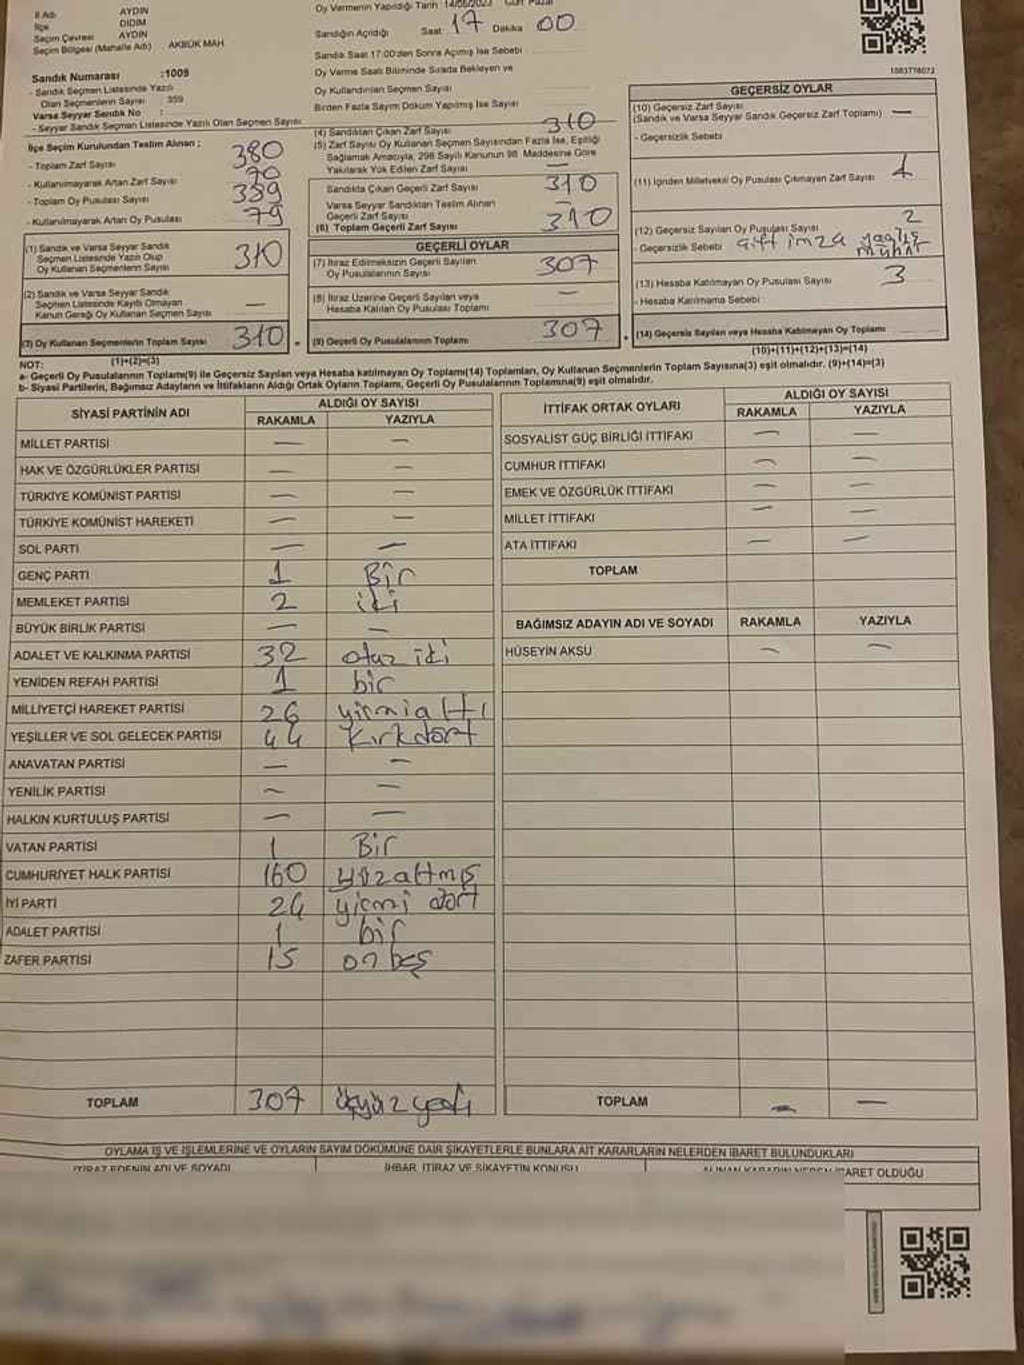 İl Adı AYDIN
İlçe DİDİM
Seçim Çevresi AYDIN
Seçim Bölgesi (Mahalle Adı) AKBÜK MAH
Oy Vermenin Yapıldığı Tarih 14/05/2023 Gün Pazar
Sandığın Açıldığı Saat 17 Dakika 00
Sandık Saat 17:00'den Sonra Açımış İse Sebebi
Oy Verme Saati Bitiminde Sırada Bekleyen ve
Oy Kullandırılan Seçmen Sayısı
Birden Fazla Sayım Döküm Yapılmış İse Sayısı
1083776072
Sandık Numarası :1009
- Sandık Seçmen Listesinde Yazılı
Olan Seçmenlerin Sayısı : 359
Varsa Seyyar Sandık No :
- Seyyar Sandık Seçmen Listesinde Yazılı Olan Seçmen Sayısı
İlçe Seçim Kurulundan Teslim Alınan ;
- Toplam Zarf Sayısı 380
- Kullanılmayarak Artan Zarf Sayısı 70
- Toplam Oy Pusulası Sayısı 389
- Kullanılmayarak Artan Oy Pusulası 79
(1) Sandık ve Varsa Seyyar Sandık
Seçmen Listesinde Yazılı Olup
Oy Kullanan Seçmenlerin Sayısı 310
(2) Sandık ve Varsa Seyyar Sandık
Seçmen Listesinde Kayıtlı Olmayan
Kanun Gereği Oy Kullanan Seçmen Sayısı —
(3) Oy Kullanan Seçmenlerin Toplam Sayısı 310
(1)+(2)=(3)
(4) Sandıktan Çıkan Zarf Sayısı 310
(5) Zarf Sayısı Oy Kullanan Seçmen Sayısından Fazla İse, Eşitliği
Sağlamak Amacıyla, 298 Sayılı Kanunun 98. Maddesine Göre
Yakılarak Yok Edilen Zarf Sayısı —
Sandıkta Çıkan Geçerli Zarf Sayısı 310
Varsa Seyyar Sandıktan Teslim Alınan
Geçerli Zarf Sayısı —
(6) Toplam Geçerli Zarf Sayısı 310
GEÇERLİ OYLAR
(7) İtiraz Edilmeksizin Geçerli Sayılan
Oy Pusulalarının Sayısı 307
(8) İtiraz Üzerine Geçerli Sayılan veya
Hesaba Katılan Oy Pusulası Toplamı —
(9) Geçerli Oy Pusulalarının Toplamı 307
GEÇERSİZ OYLAR
(10) Geçersiz Zarf Sayısı
(Sandık ve Varsa Seyyar Sandık Geçersiz Zarf Toplamı) —
- Geçersizlik Sebebi
(11) İçinden Milletvekili Oy Pusulası Çıkmayan Zarf Sayısı 1
(12) Geçersiz Sayılan Oy Pusulası Sayısı 2
- Geçersizlik Sebebi Çift imza yanlış mühür
(13) Hesaba Katılmayan Oy Pusulası Sayısı 3
- Hesaba Katılmama Sebebi
(14) Geçersiz Sayılan veya Hesaba Katılmayan Oy Toplamı
(10)+(11)+(12)+(13)=(14)
NOT:
a- Geçerli Oy Pusulalarının Toplamı(9) ile Geçersiz Sayılan veya Hesaba katılmayan Oy Toplamı(14) Toplamları, Oy Kullanan Seçmenlerin Toplam Sayısına(3) eşit olmalıdır. (9)+(14)=(3)
b- Siyasi Partilerin, Bağımsız Adayların ve İttifakların Aldığı Ortak Oyların Toplamı, Geçerli Oy Pusulalarının Toplamına(9) eşit olmalıdır.
SİYASİ PARTİNİN ADI ALDIĞI OY SAYISI
RAKAMLA YAZIYLA
MİLLET PARTİSİ — —
HAK VE ÖZGÜRLÜKLER PARTİSİ — —
TÜRKİYE KOMÜNİST PARTİSİ — —
TÜRKİYE KOMÜNİST HAREKETİ — —
SOL PARTİ — —
GENÇ PARTİ 1 Bir
MEMLEKET PARTİSİ 2 iki
BÜYÜK BİRLİK PARTİSİ — —
ADALET VE KALKINMA PARTİSİ 32 otuz iki
YENİDEN REFAH PARTİSİ 1 bir
MİLLİYETÇİ HAREKET PARTİSİ 26 yirmialtı
YEŞİLLER VE SOL GELECEK PARTİSİ 44 kırkdört
ANAVATAN PARTİSİ — —
YENİLİK PARTİSİ — —
HALKIN KURTULUŞ PARTİSİ — —
VATAN PARTİSİ 1 Bir
CUMHURİYET HALK PARTİSİ 160 yüzaltmış
İYİ PARTİ 24 yirmi dört
ADALET PARTİSİ 1 bir
ZAFER PARTİSİ 15 on beş
TOPLAM 307 üçyüz yedi
İTTİFAK ORTAK OYLARI ALDIĞI OY SAYISI
RAKAMLA YAZIYLA
SOSYALİST GÜÇ BİRLİĞİ İTTİFAKI — —
CUMHUR İTTİFAKI — —
EMEK VE ÖZGÜRLÜK İTTİFAKI — —
MİLLET İTTİFAKI — —
ATA İTTİFAKI — —
TOPLAM
BAĞIMSIZ ADAYIN ADI VE SOYADI RAKAMLA YAZIYLA
HÜSEYİN AKSU — —
TOPLAM — —
OYLAMA İŞ VE İŞLEMLERİNE VE OYLARIN SAYIM DÖKÜMÜNE DAİR ŞİKAYETLERLE BUNLARA AİT KARARLARIN NELERDEN İBARET BULUNDUKLARI
İTİRAZ EDENİN ADI VE SOYADI İHBAR, İTİRAZ VE ŞİKAYETİN KONUSU ALINAN KARARIN NEDEN İBARET OLDUĞU